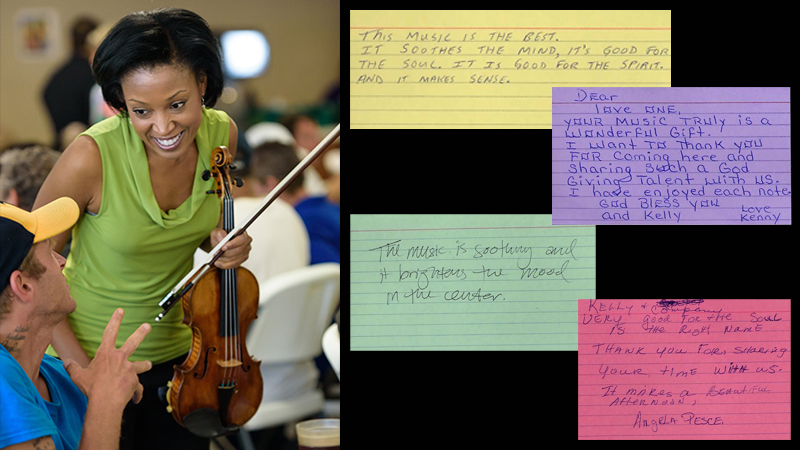 THIS MUSIC IS THE BEST.
IT SOOTHES THE MIND, IT'S GOOD FOR
THE SOUL. IT IS GOOD FOR THE SPIRIT.
AND IT MAKES SENSE.
Dear
love one,
your Music Truly is a
wonderful Gift.
I want to thank you
For Coming here and
Sharing Such a God
Giving Talent with us.
I have enjoyed each note.
God Bless you
and Kelly
Love
Kenny
The music is soothing and
it brightens the mood
in the center.
KELLY &
Company
VERY good For the Soul
IS the Right NAME
THANK you For SHARING
YOUR time With US.
It MAKES A BEAUTIFUL
AFTERNOON,
ANGELA PESCE.